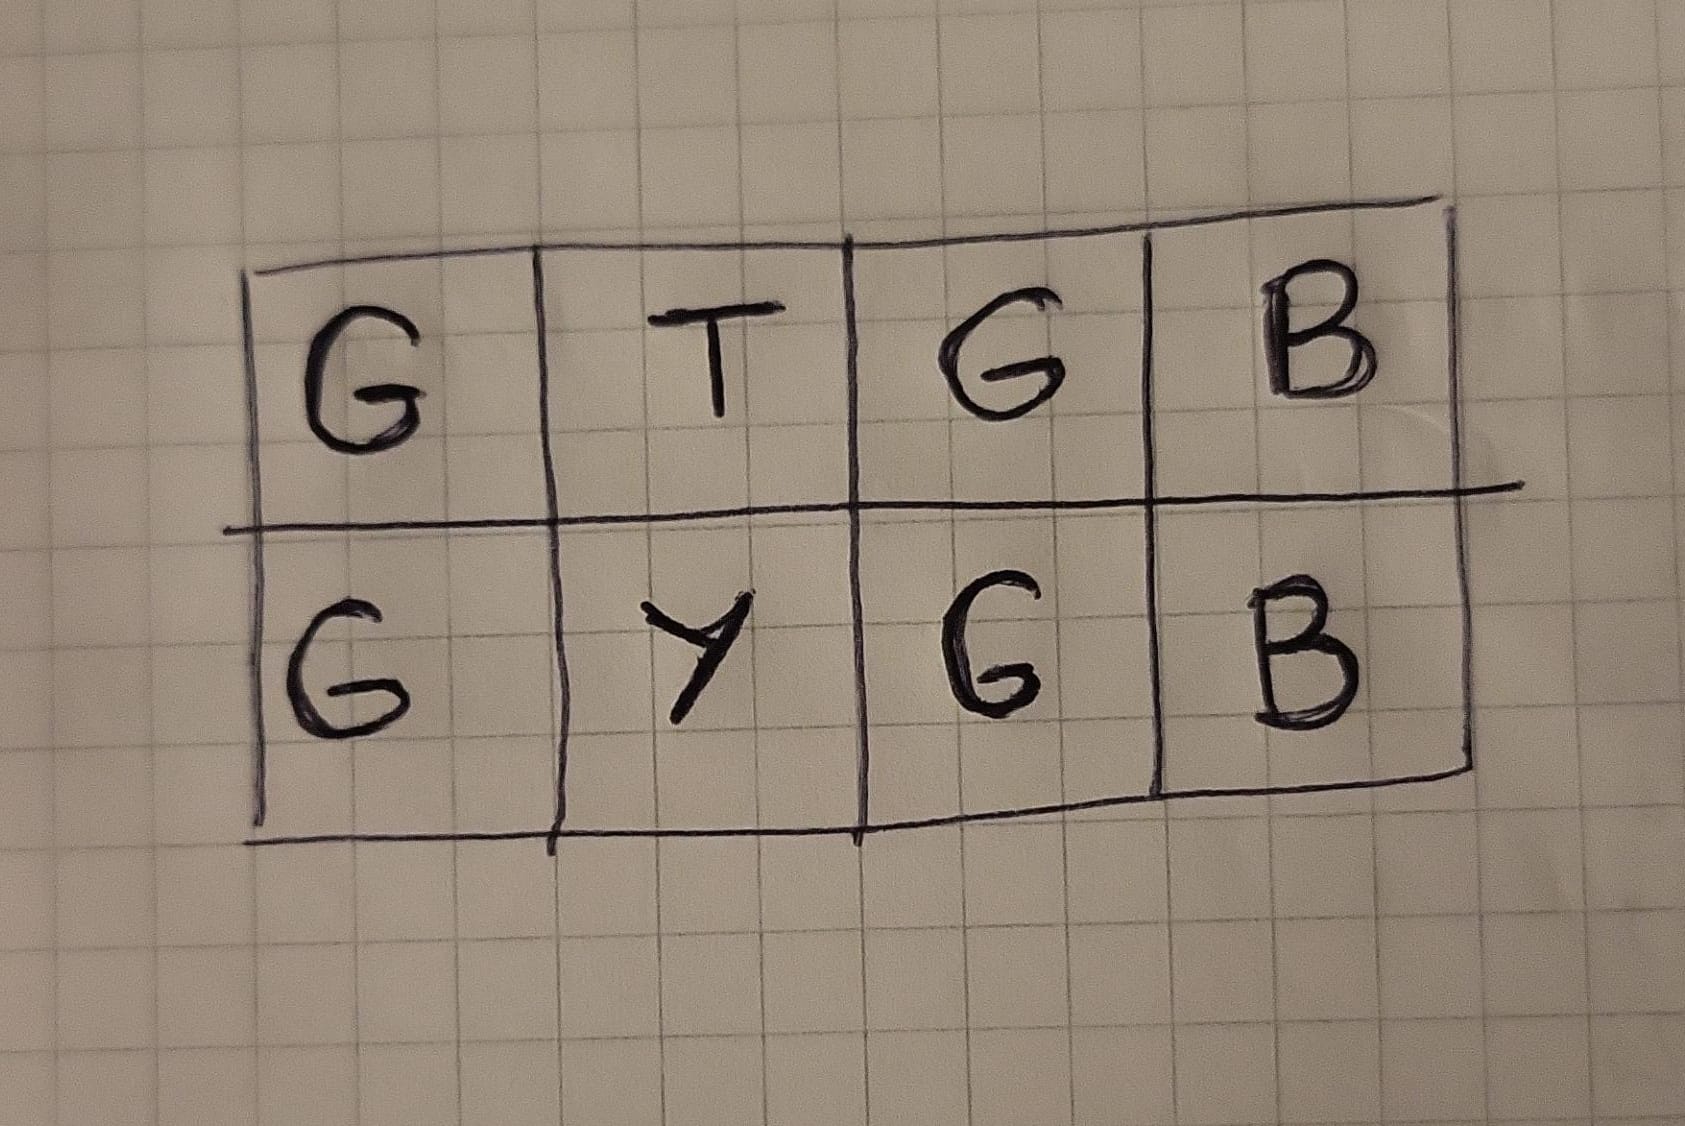 G T G B
G Y G B